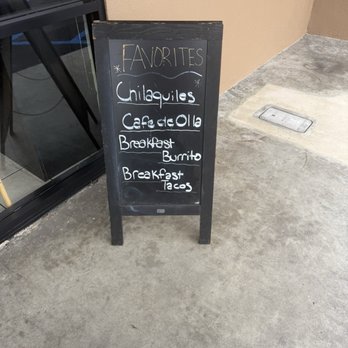 FAVORITES
Chilaquiles
Cafe de Olla
Breakfast
Burrito
Breakfast
Tacos